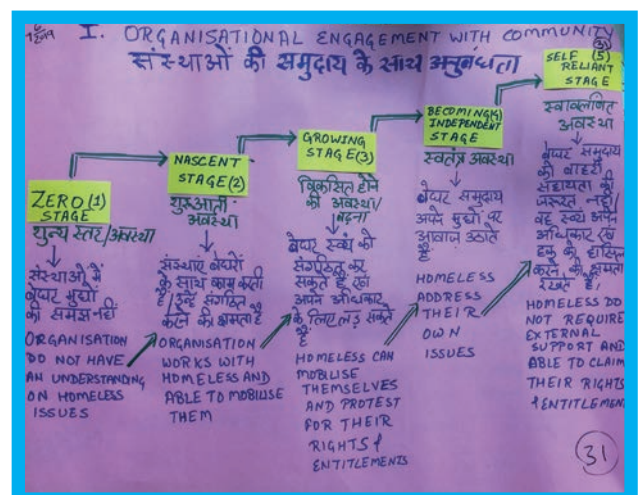 I. ORGANISATIONAL ENGAGEMENT WITH COMMUNITY
संस्थाओं की समुदाय के साथ अनुबंधता
ZERO (1)
STAGE
शुन्य स्तर/अवस्था
संस्थाओं में
बेघर मुद्दों
की समझ नहीं
ORGANISATION
DO NOT HAVE
AN UNDERSTANDING
ON HOMELESS
ISSUES
NASCENT
STAGE (2)
शुरुआती
अवस्था
संस्थाएं बेघरों
के साथ काम करती
है/इन्हें संगठित
करने की क्षमता है
ORGANISATION
WORKS WITH
HOMELESS AND
ABLE TO MOBILISE
THEM
GROWING
STAGE (3)
विकसित होने
की अवस्था/
बढ़ना
बेघर स्वयं को
संगठित कर
सकते हैं एवं
अपने अधिकार
के लिए लड़ सकते
हैं
HOMELESS CAN
MOBILISE
THEMSELVES
AND PROTEST
FOR THEIR
RIGHTS &
ENTITLEMENTS
BECOMING (4)
INDEPENDENT
STAGE
स्वतंत्र अवस्था
बेघर समुदाय
अपने मुद्दों पर
आवाज उठाते
हैं
HOMELESS
ADDRESS
THEIR
OWN
ISSUES
SELF (5)
RELIANT
STAGE
स्वावलंबित
अवस्था
बेघर समुदाय
को बाहरी
सहायता की
जरूरत नहीं
वह स्वयं अपने
अधिकार एवं
हक को हासिल
करने की क्षमता
रखते है,
HOMELESS DO
NOT REQUIRE
EXTERNAL
SUPPORT AND
ABLE TO CLAIM
THEIR RIGHTS
& ENTITLEMEN
31